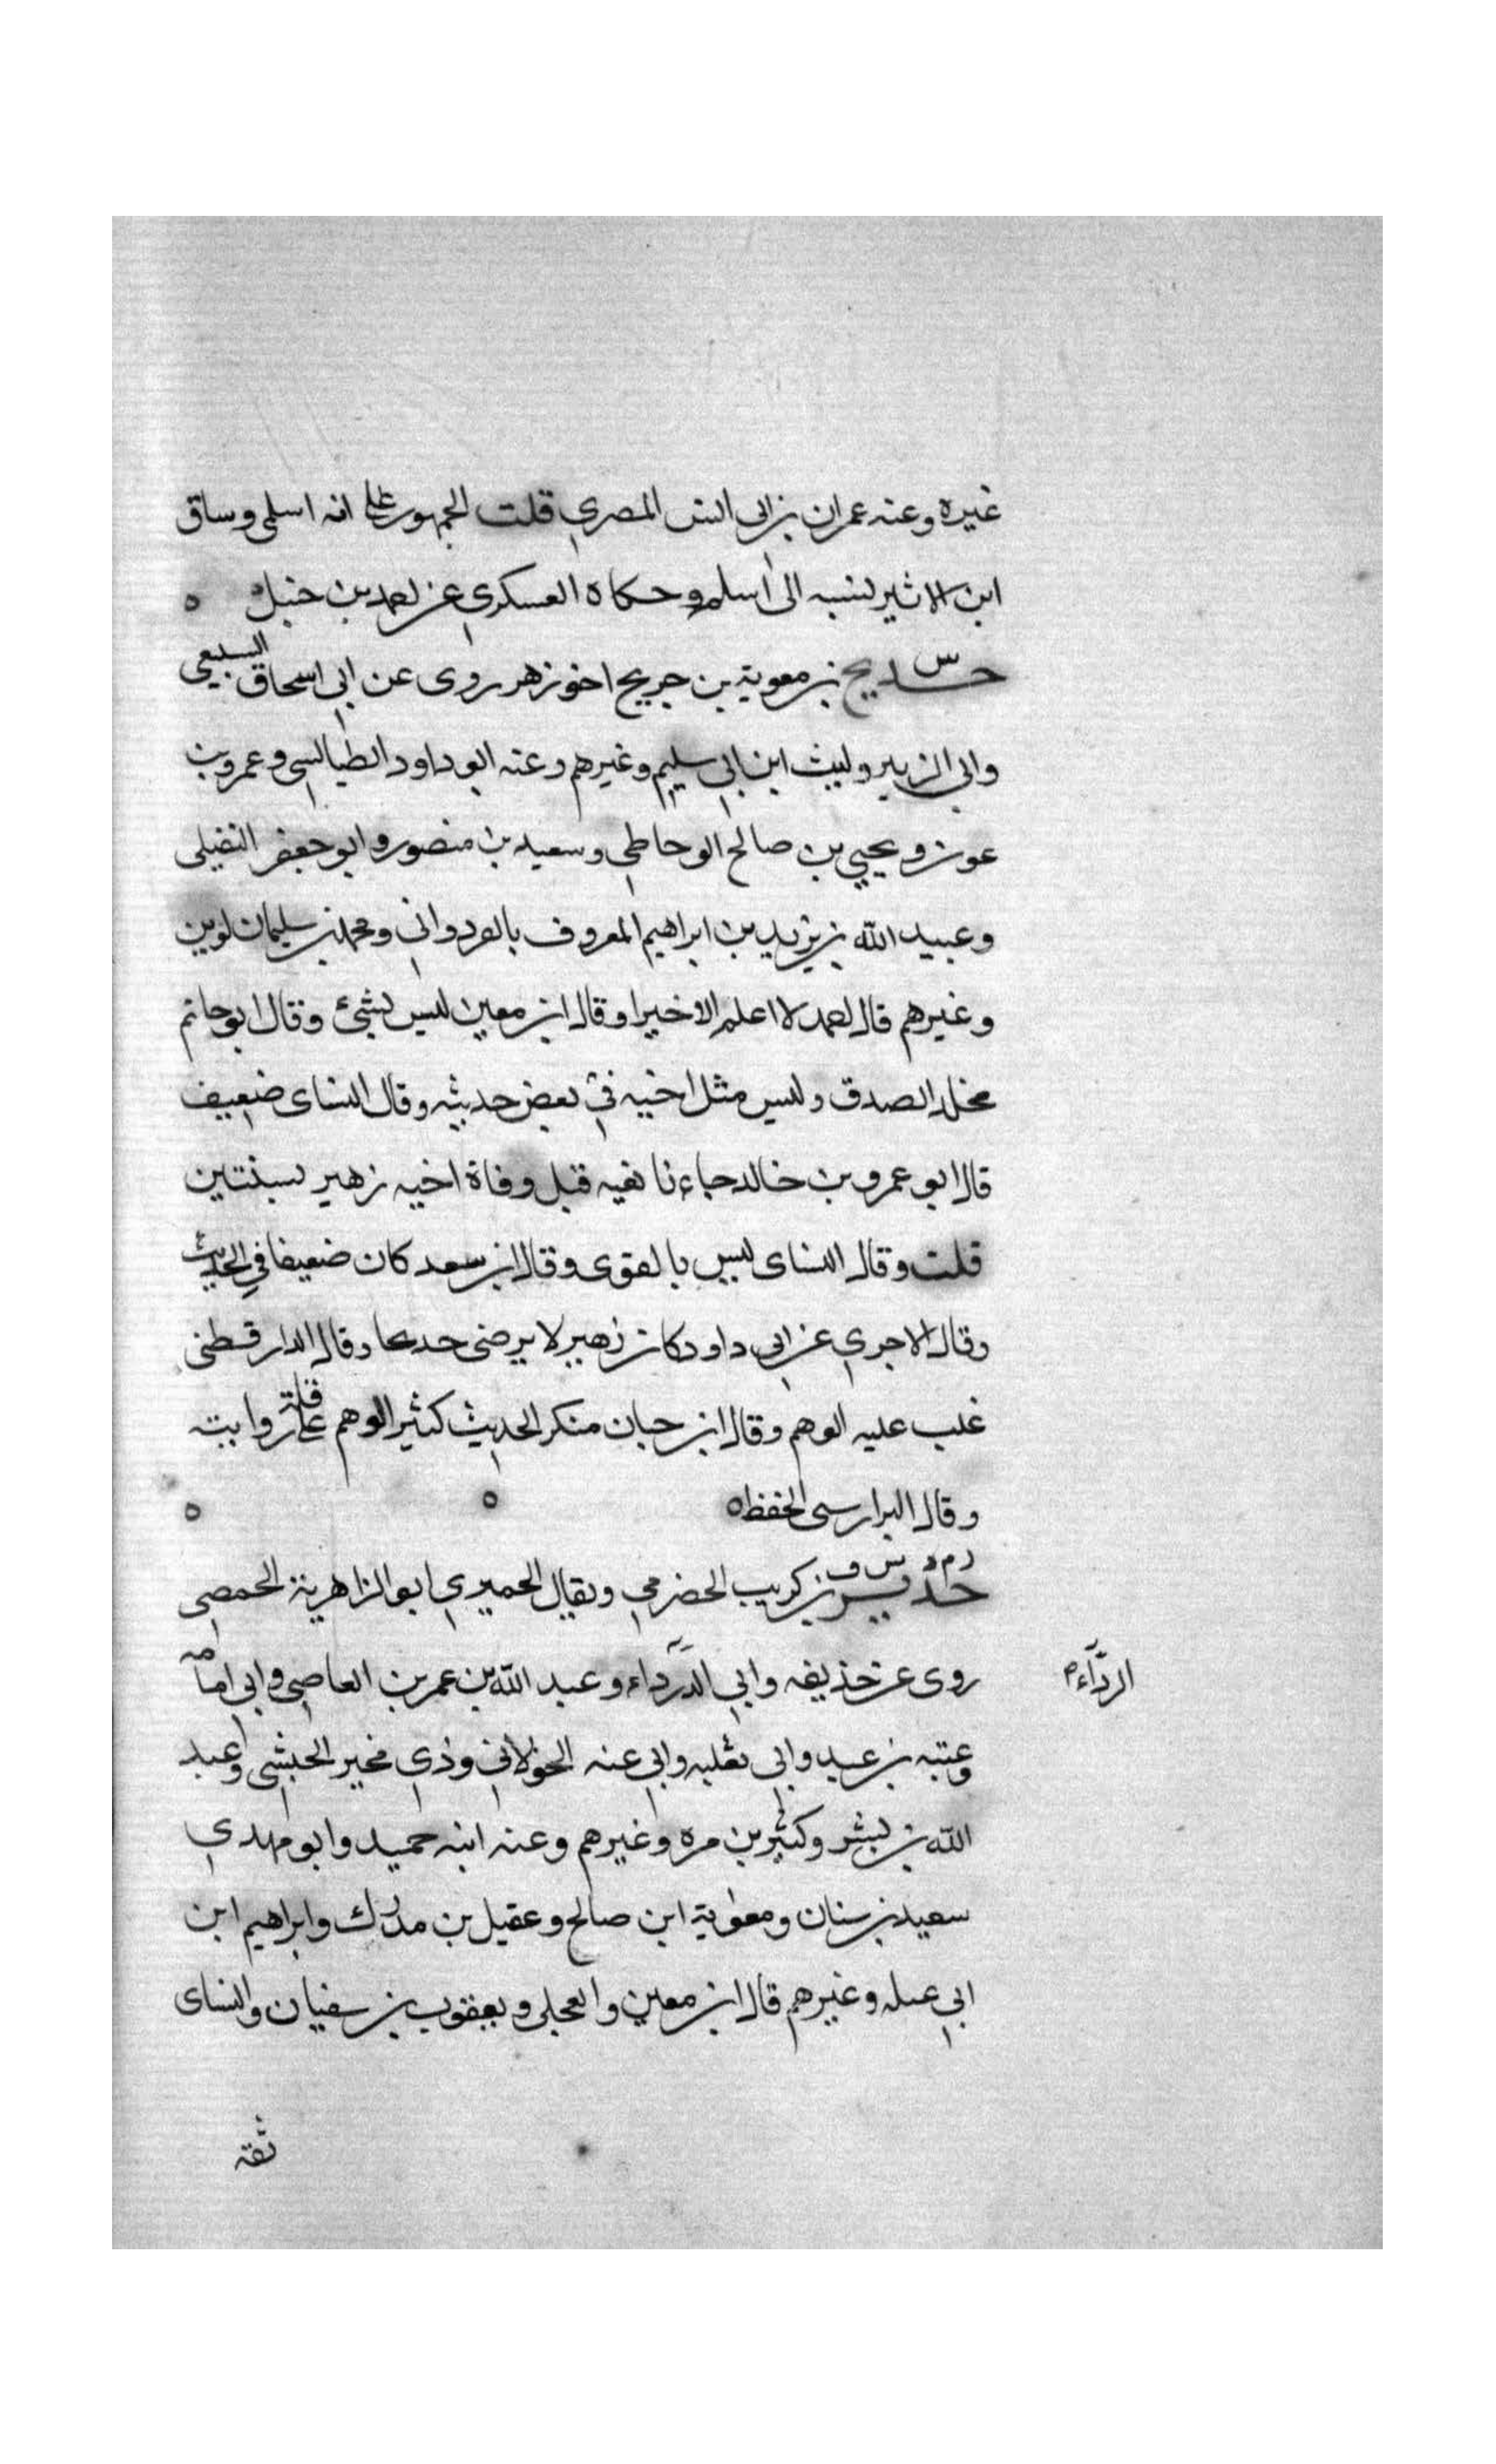 غيره وعنه عمران بن ابى انس المصري قلت الجمهور على انه اسلمى وساق
ابن الاثير نسبه الى اسلم وحكاه العسكري عن احمد بن حنبل ه
س
حديج بن معوية بن جريج اخو زهر روى عن ابي اسحاق السبيعي
وابي الزبير وليث ابن ابي سليم وغيرهم وعنه ابو داود الطيالسي وعمرو بن
عون ويحيي بن صالح الوحاطي وسعيد بن منصور وابو جعفر النفيلى
وعبيد الله بن يزيد بن ابراهيم المعروف بالقردواني ومحمد بن سليمان لوين
وغيرهم قال احمد لا اعلم الا خيرا وقال ابن معين ليس بشئ وقال ابو حاتم
محله الصدق وليس مثل اخيه في بعض حديثه وقال النساى ضعيف
قال ابو عمرو بن خالد جاءنا نعيه قبل وفاة اخيه زهير بسنتين
قلت وقال النساى ليس بالقوى وقال ابن سعد كان ضعيفا في الحديث
وقال الاجري عن ابي داود كان زهير لا يرضى حديجا وقال الدار قطنى
غلب عليه الوهم وقال ابن حبان منكر الحديث كثير الوهم على قلة روايته
وقال البزار سى الحفظ ه ه ه
ر م د س ق
حدير بن كريب الحضرمي ويقال الحميري ابو الزاهرية الحمصي
روى عن حذيفه وابي الدرداء وعبد الله بن عمر بن العاصي وابي امامه
الردّاء ه
وعتبه بن عبد وابى ثعلبه وابي عنبه الخولاني وذي مخبر الحبشي وعبد
الله بن بشر وكثير بن مره وغيرهم وعنه ابنه حميد وابو مهدي
سعيد بن سنان ومعوية ابن صالح وعقيل بن مدرك وابراهيم ابن
ابي عبله وغيرهم قال ابن معين والعجلى ويعقوب بن سفيان والنساى
ثقة